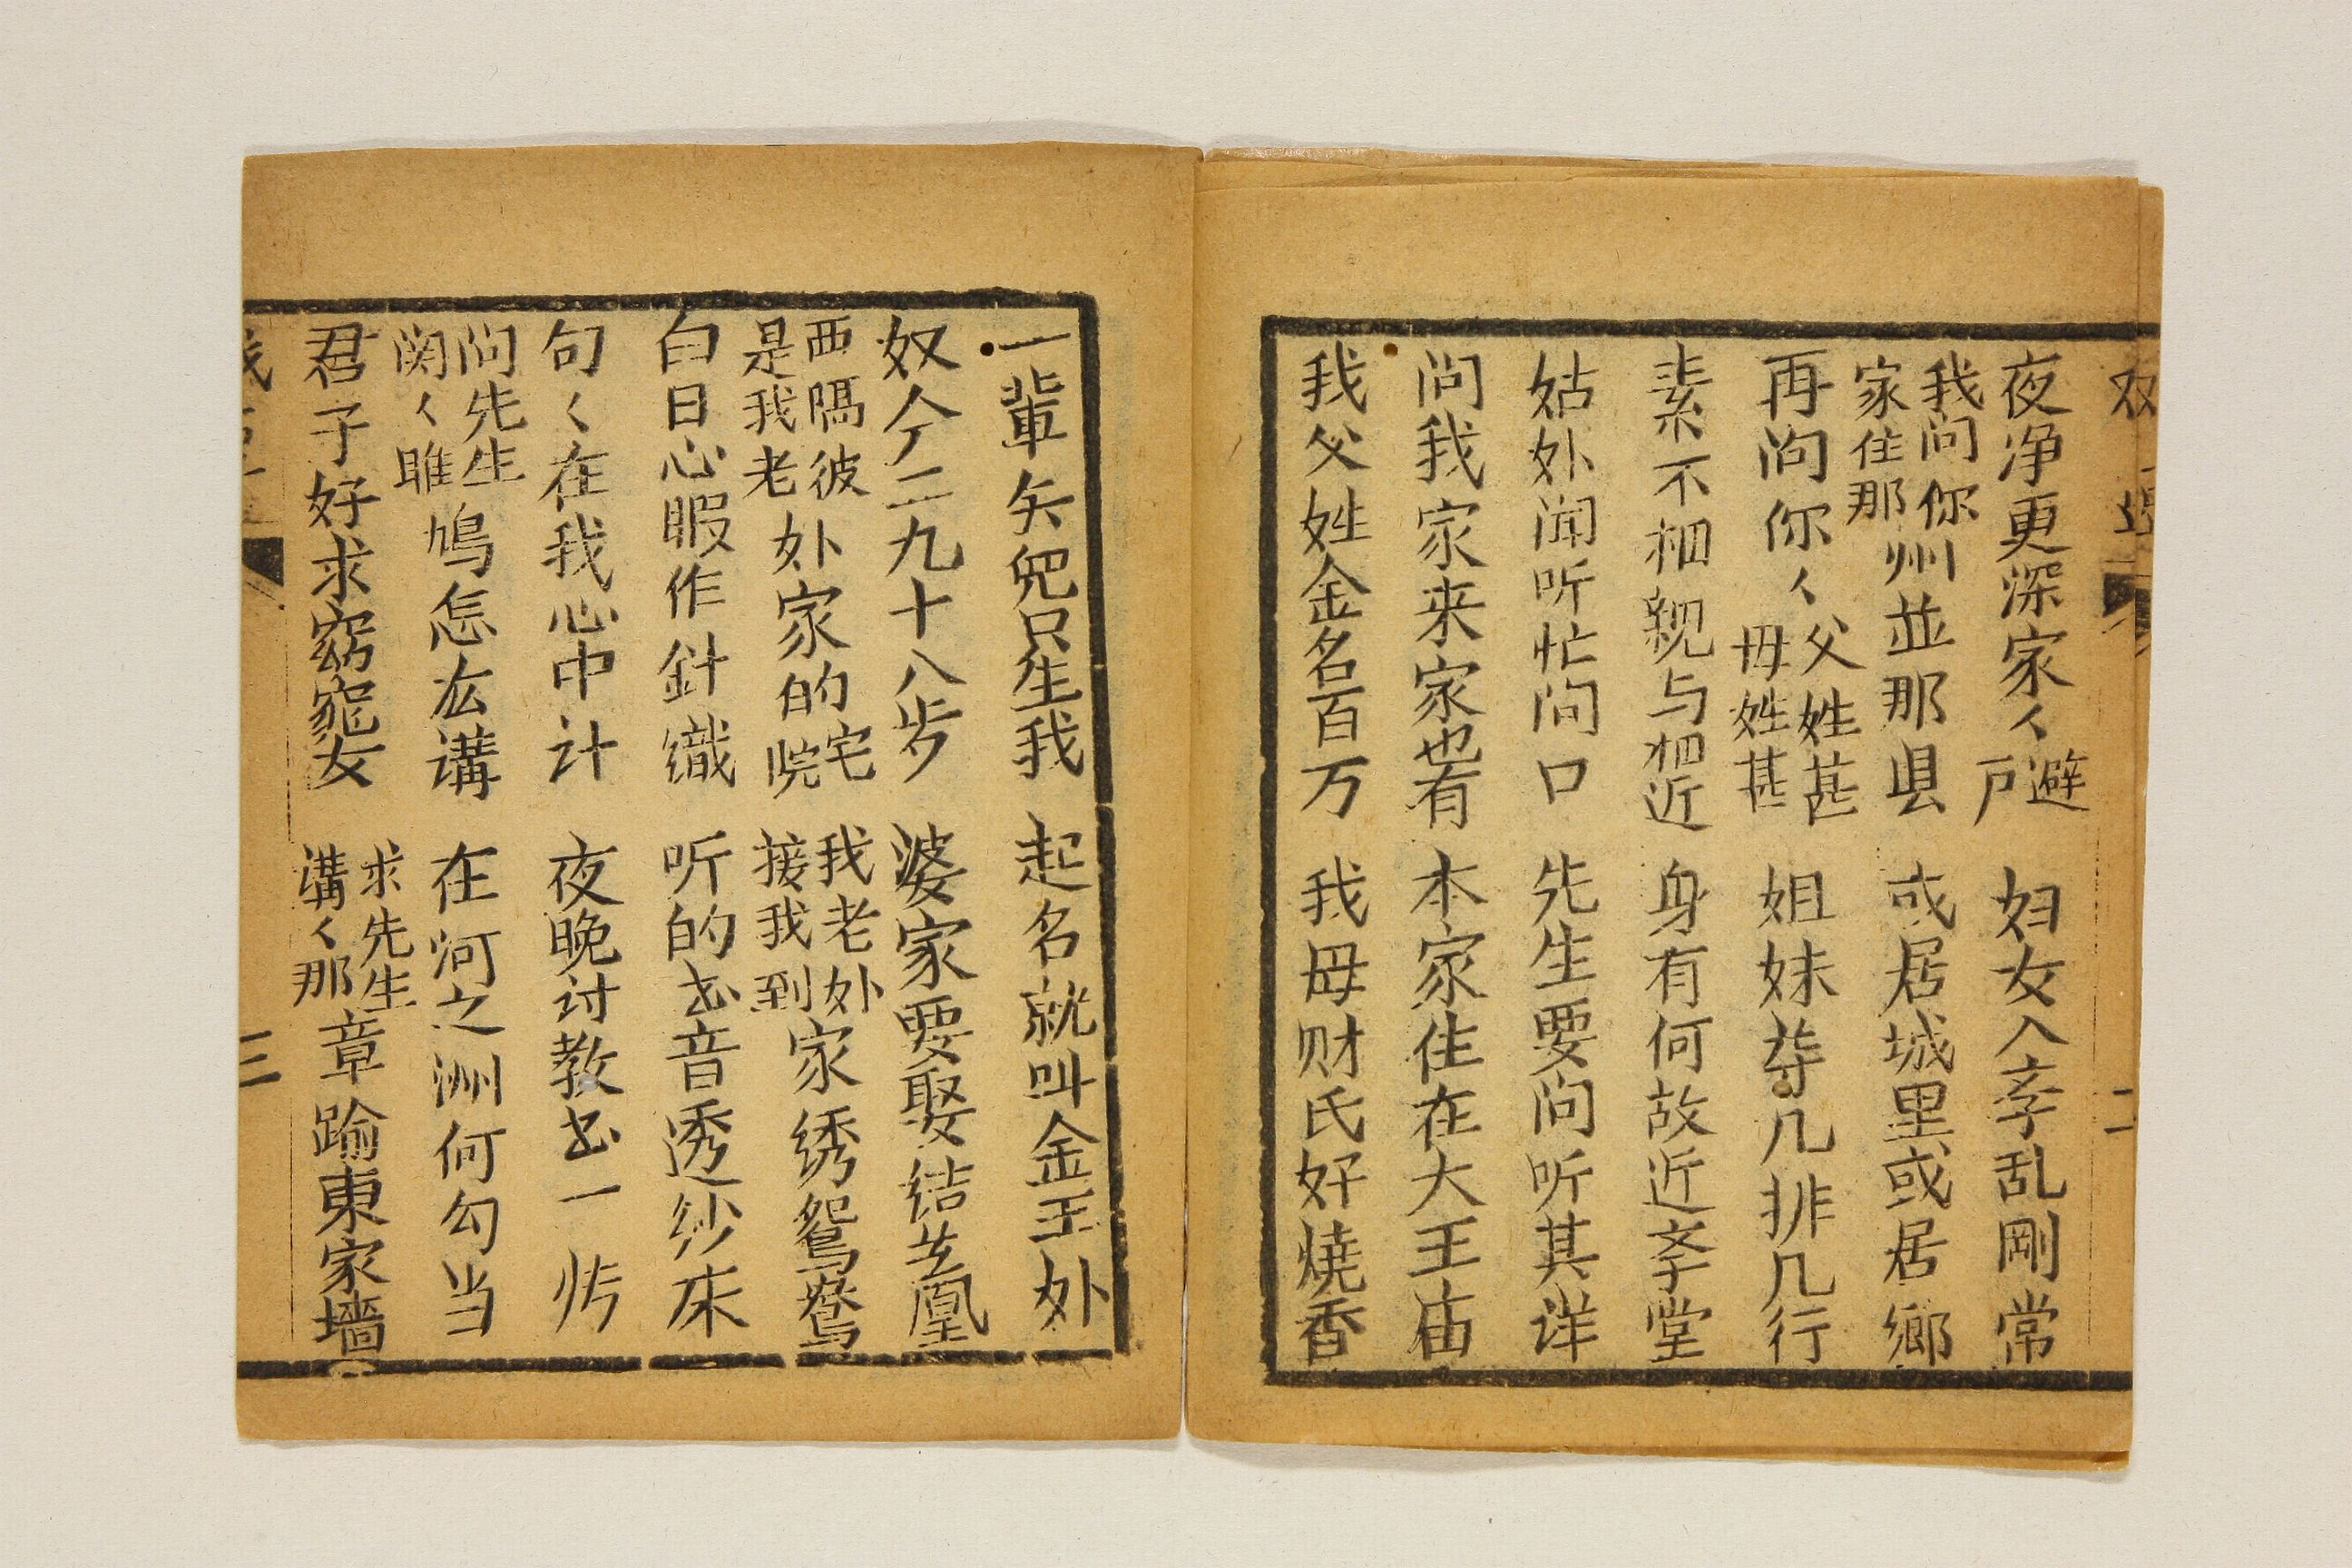 双 二
夜净更深家〻避户 妇女入斈乱剛常
我问你家住那州並那县 或居城里或居鄉
再问你〻父姓甚母姓甚 姐妹㝵几排几行
素不相親与相近 身有何故近斈堂
姑娘闻听忙问口 先生要问听其详
问我家来家也有 本家住在大王庙
我父姓金名百万 我母财氏好燒香
一輩矢兒只生我 起名就叫金玉
奴今二九十八岁 婆家要娶结鳳凰
西隔彼是我老家的宅院 我老接我到家绣鴛鴦
白日心暇作針織 听的音透纱床
句〻在我心中计 夜晚讨教一
问先生関〻雎鳩怎広講 在河之洲何勾当
君子好求窈窕女 求先生講〻那章踰東家墙
三